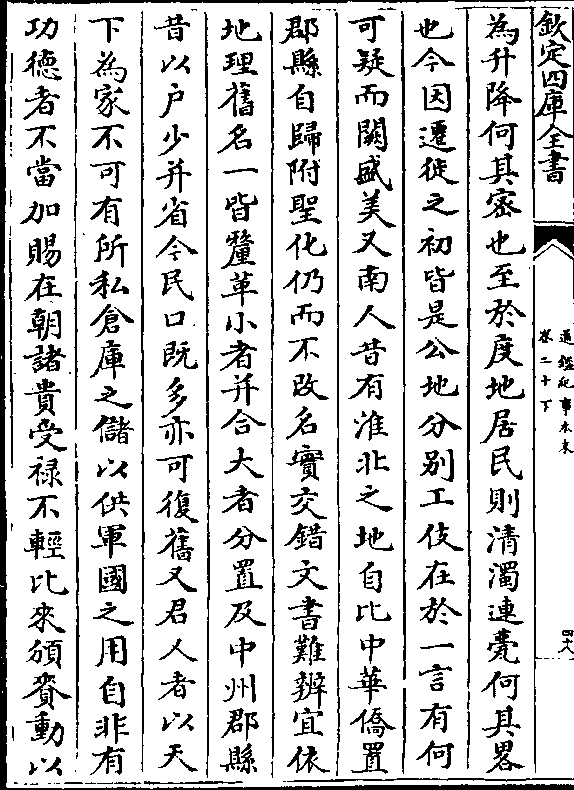 欽定四庫全書
通鑑紀事本末
卷二十下
四十八
為升降何其宻也至於度地居民則清濁連甍何其畧
也今因遷徙之初皆是公地分别工伎在於一言有何
可疑而闕盛美又南人昔有淮北之地自比中華僑置
郡縣自歸附聖化仍而不改名實交錯文書難辨宜依
地理舊名一皆釐革小者并合大者分置及中州郡縣
昔以户少并省今民口既多亦可復舊又君人者以天
下為家不可有所私倉庫之儲以供軍國之用自非有
功德者不當加賜在朝諸貴受禄不輕比來頒賚動以